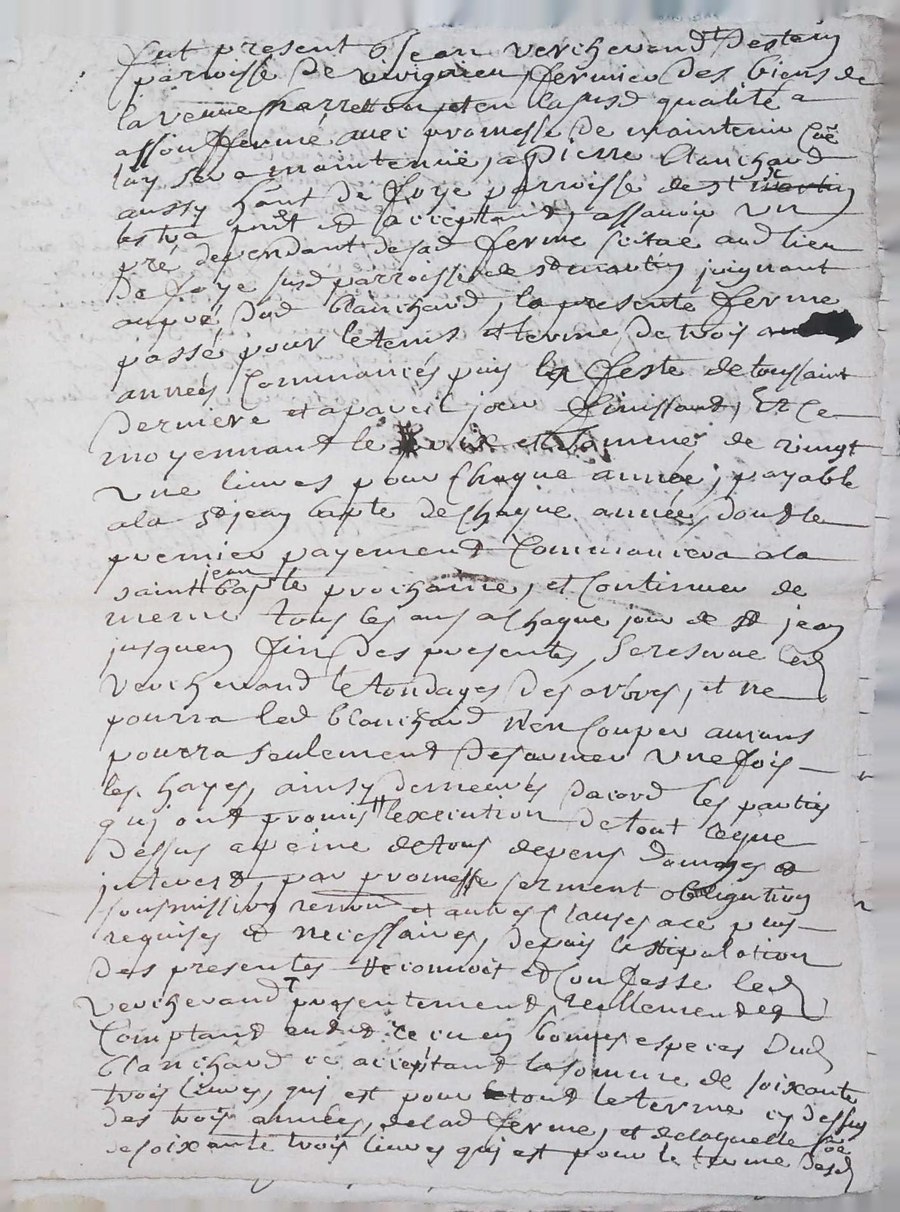 fut present Sr Jean Verchevand destein
parroisse de vivignieu, fermier des biens de
la veuve Charretton et en lasusd qualité a
assoufermé avec promesse de maintenir Coẽ
luy sera maintenüe, a Pierre blanchard
aussy hant de foye parroisse de st martin
estre pnt et acceptand, assavoir un
pré dependant de sad ferme scitue aud lieu
de foye susd parroisse de st martin joignant
au pré dud blanchard, la presente ferme
passé pour le tems et terme de trois
années Commancés puis la feste de toussaint
derniere et a pareil jour finissand, Et Ce
moyennand le prix et somme de vingt
une livres pour Chaque année, payable
a la st jean bapte de Chaque année, dont le
premier payement Commancera a la
saint jean bapte prochaine, et Continuer de
meme tous les ans a Chaque jour de st jean
jusquen fin des presentes, Se reserve led
Verchevand le tondages des arbres, et ne
pourra led blanchard n'en Couper aucuns
pourra seulement desarmer une fois
les hayes, ainsy demeurés dacord les parties
qui ont promis lexecution de tout ceque
dessus a peine de tous depens domages et
interest, par promesse serment obligation
soumission renond et autres Clauses a ce plus
requises et necessaires, depuis la stipulation
des presentes reconnoit et Confesse led
Verchevand presentement reellement et
Comptand eu et receu en bonnes especes dud
blanchard ce acceptant la somme de soixante
trois livres, qui est pour tout le terme cy dessus
des trois années, de lad ferme, et de laquelle soẽ
de soixante trois livres qui est pour le terme desd